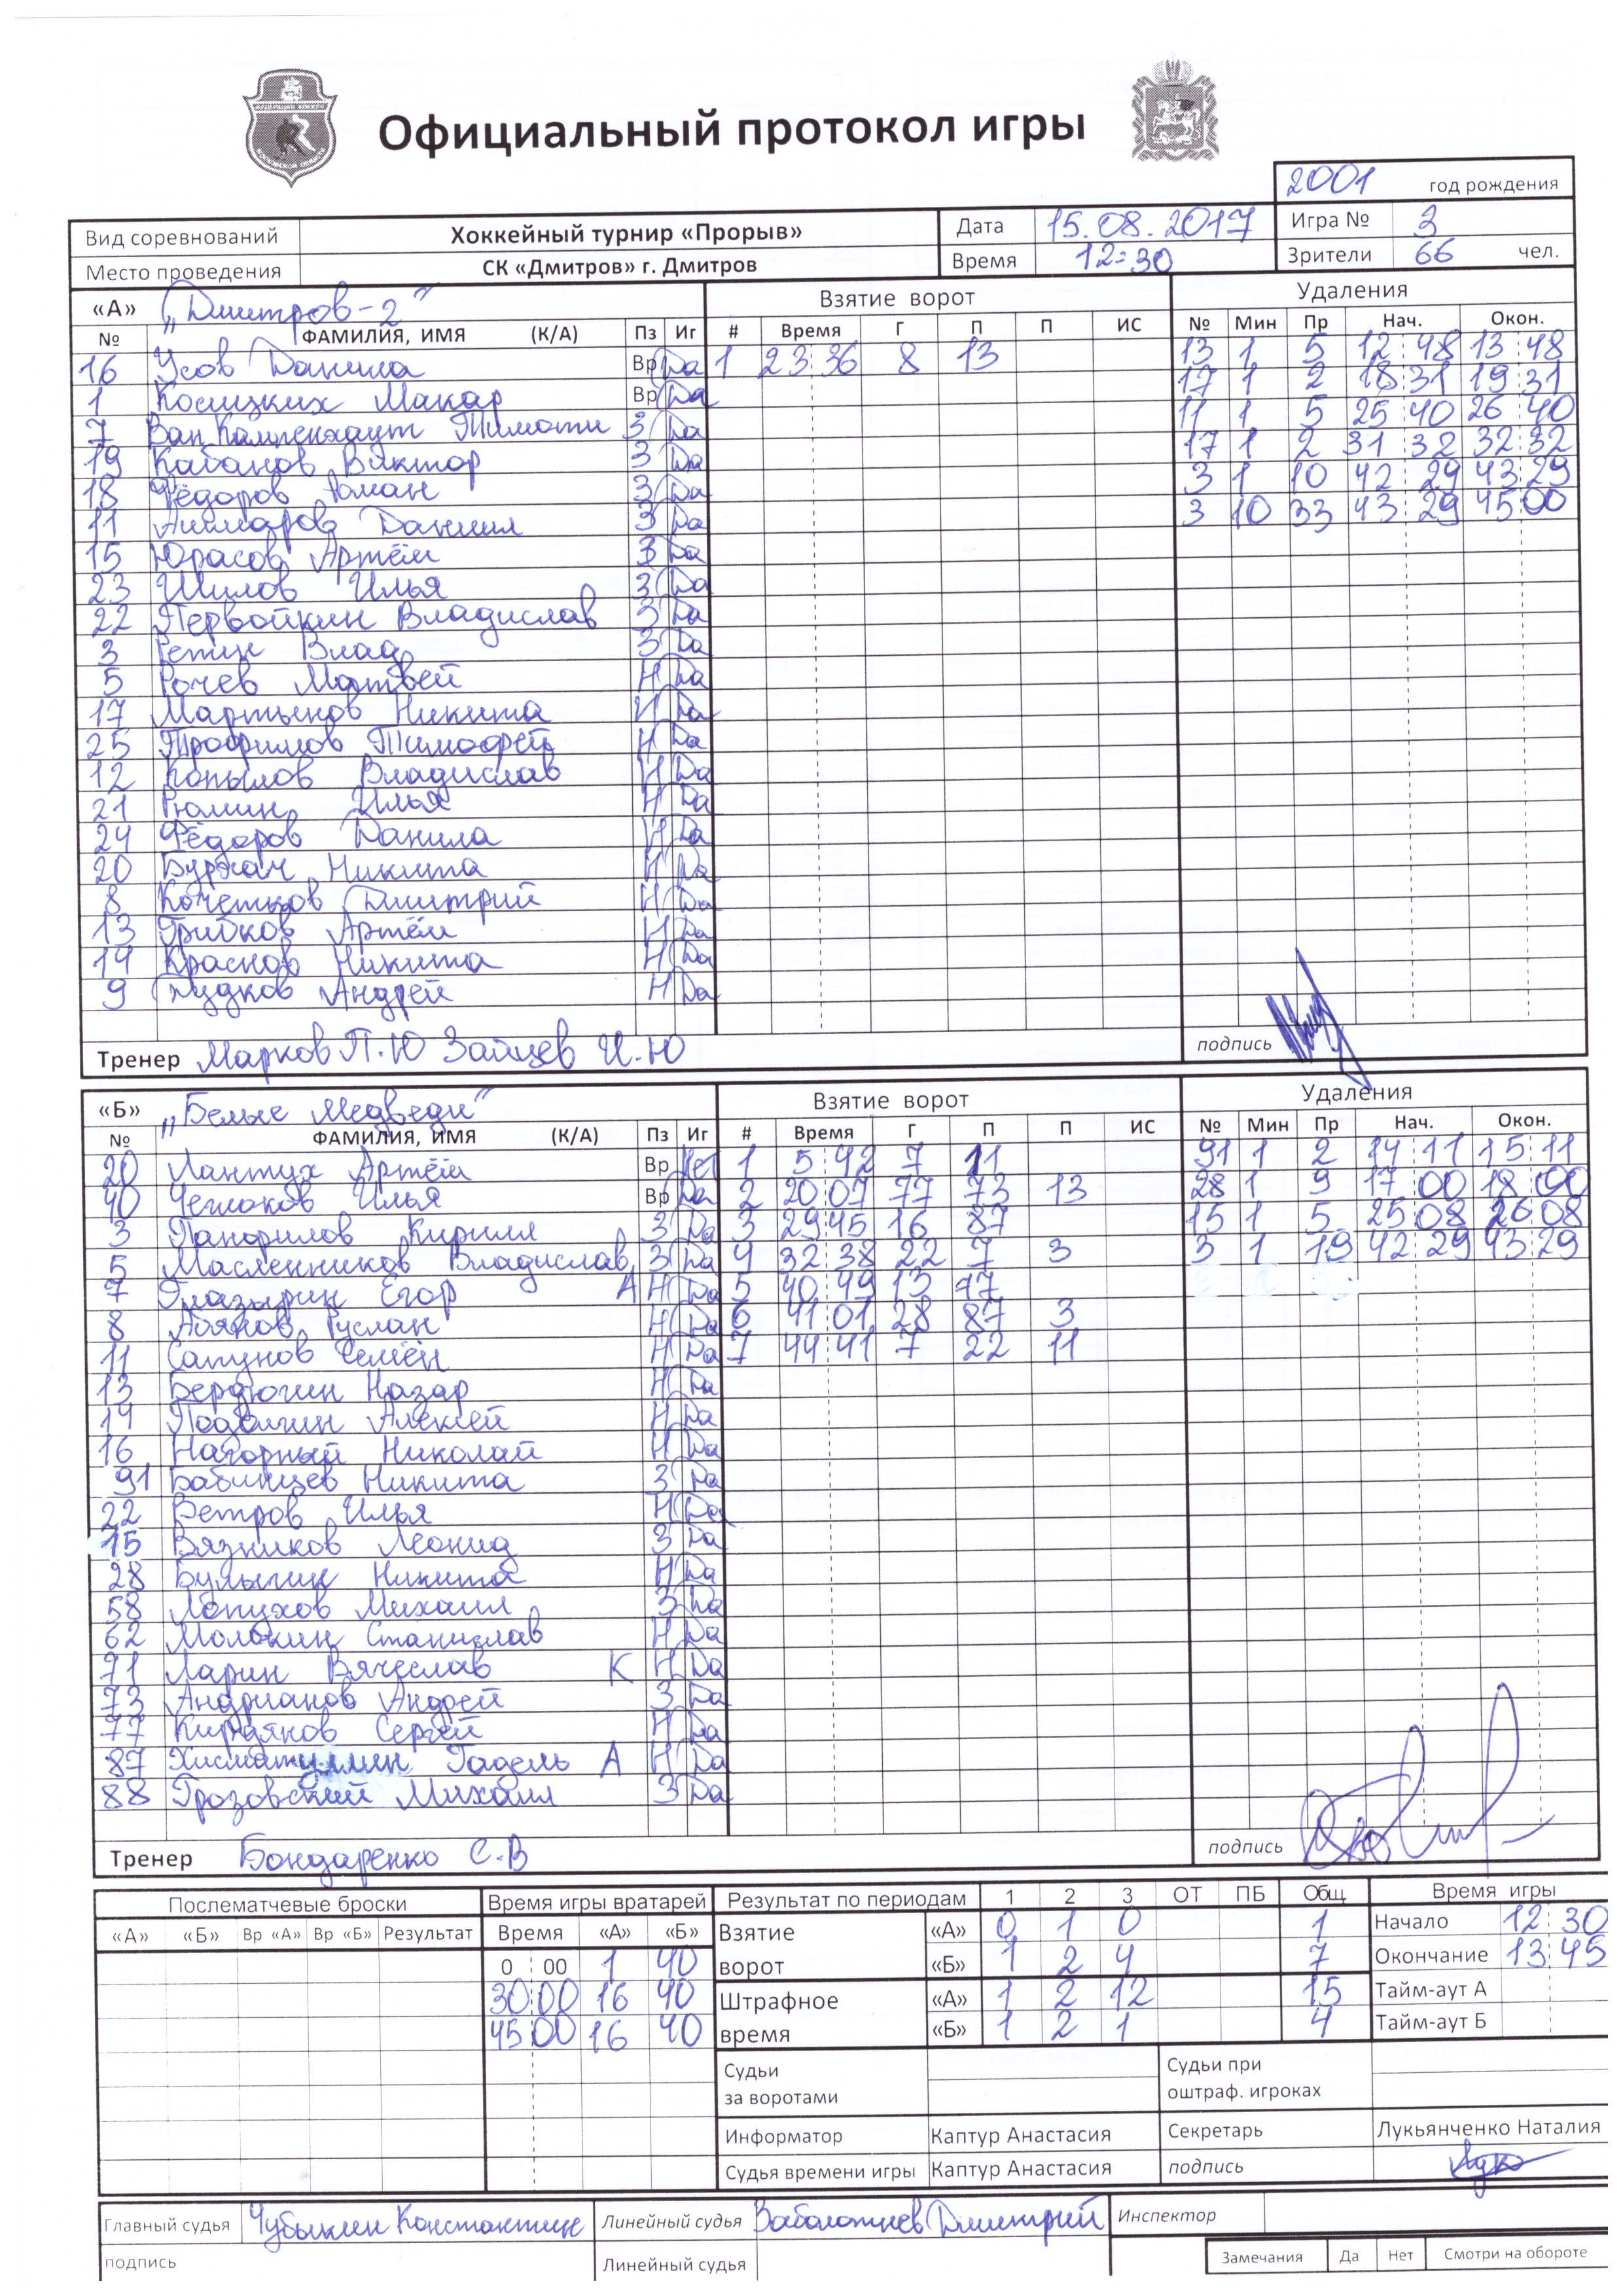 Официальный протокол игры
2001 год рождения
Вид соревнований Хоккейный турнир «Прорыв» Дата 15.08.2017 Игра № 3
Место проведения СК «Дмитров» г. Дмитров Время 12:30 Зрители 66 чел.
«А» „Дмитров-2“ Взятие ворот Удаления
№ ФАМИЛИЯ, ИМЯ (К/А) Пз Иг # Время Г П П ИС № Мин Пр Нач. Окон.
16 Усов Данила Вр Да 1 23 36 8 13 13 1 5 12 48 13 48
1 Косицких Макар Вр Да 17 1 2 18 31 19 31
7 Ван Кампенхаут Тимоти З Да 11 1 5 25 40 26 40
19 Кабанов Виктор З Да 17 1 2 31 32 32 32
18 Фёдоров Роман З Да 3 1 10 42 29 43 29
11 Даниил З Да 3 10 33 43 29 45 00
15 Юрасов Артём З Да
23 Шилов Илья З Да
22 Первойкин Владислав З Да
3 Репин Влад З Да
5 Рочев Матвей Н Да
17 Мартынов Никита Н Да
25 Трофимов Тимофей Н Да
12 Копылов Владислав Н Да
21 Рюмин Илья Н Да
24 Фёдоров Данила Н Да
20 Буржач Никита Н Да
8 Кочетков Дмитрий Н Да
13 Грибков Артём Н Да
14 Краснов Никита Н Да
9 Гудков Андрей Н Да
Тренер Марков П.Ю Зайцев И.Ю подпись
«Б» „Белые Медведи“ Взятие ворот Удаления
№ ФАМИЛИЯ, ИМЯ (К/А) Пз Иг # Время Г П П ИС № Мин Пр Нач. Окон.
20 Лантух Артём Вр Нет 1 5 42 7 11 91 1 2 14 11 15 11
40 Чеглаков Илья Вр Да 2 20 07 77 73 13 28 1 9 17 00 18 00
3 Панфилов Кирилл З Да 3 29 45 16 87 15 1 5 25 08 26 08
5 Масленников Владислав З Да 4 32 38 22 7 3 3 1 19 42 29 43 29
7 Глазырин Егор А Н Да 5 40 49 13 77
8 Аоянов Руслан Н Да 6 41 01 28 87 3
11 Сапунов Семён Н Да 7 44 41 7 22 11
13 Бердюгин Назар Н Да
14 Подолгин Алексей Н Да
16 Нагорный Николай Н Да
91 Бабинцев Никита З Да
22 Ветров Илья Н Да
15 Вязников Леонид З Да
28 Булыгин Никита Н Да
58 Лопухов Михаил З Да
62 Молокин Станислав Н Да
71 Ларин Вячеслав К Н Да
73 Андрианов Андрей З Да
77 Кирдяков Сергей Н Да
87 Хисматуллин Гадель А Н Да
88 Грозовский Михаил З Да
Тренер Бондаренко С.В подпись
Послематчевые броски Время игры вратарей Результат по периодам 1 2 3 ОТ ПБ Общ Время игры
«А» «Б» Вр «А» Вр «Б» Результат Время «А» «Б» Взятие ворот «А» 0 1 0 1 Начало 12 30
0 00 1 40 «Б» 1 2 4 7 Окончание 13 45
30 00 16 40 Штрафное время «А» 1 2 12 15 Тайм-аут А
45 00 16 40 «Б» 1 2 1 4 Тайм-аут Б
Судьи за воротами Судьи при оштраф. игроках
Информатор Каптур Анастасия Секретарь Лукьянченко Наталия
Судья времени игры Каптур Анастасия подпись
Главный судья Чубыкин Константин Линейный судья Заболотнев Дмитрий Инспектор
подпись Линейный судья Замечания Да Нет Смотри на обороте